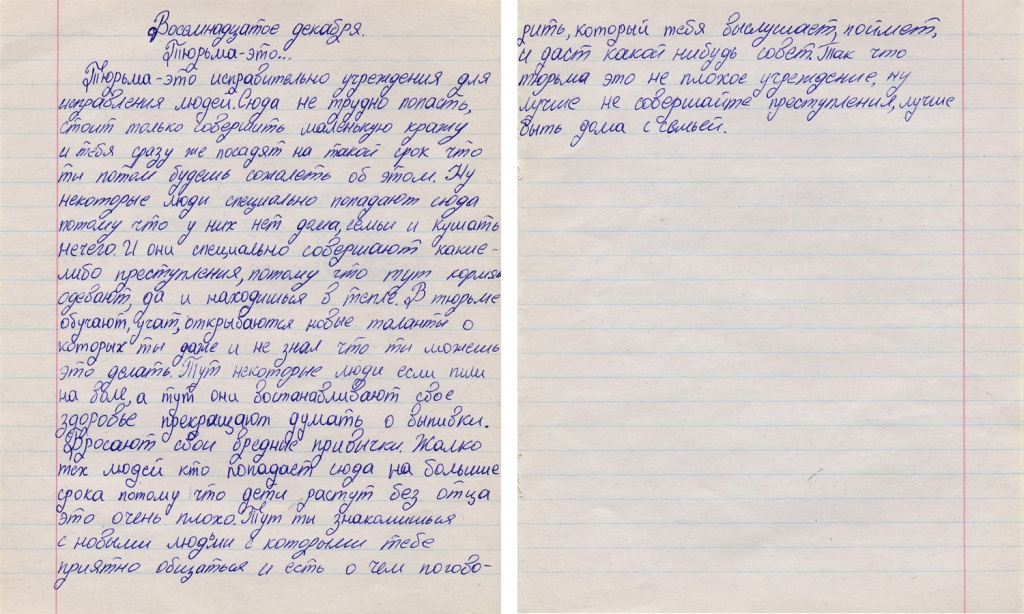 Восемнадцатое декабря.
Тюрьма-это...
Тюрьма-это исправительно учреждения для
исправления людей. Сюда не трудно попасть,
стоит только совершить маленькую кражу
и тебя сразу же посадят на такой срок что
ты потом будешь сожалеть об этом. Ну
некоторые люди специально попадают сюда
потому что у них нет дома, семьи и кушать
нечего. И они специально совершают какие-
либо преступления, потому что тут кормят
одевают, да и находишься в тепле. В тюрьме
обучают, учат, открываются новые таланты о
которых ты даже и не знал что ты можешь
это делать. Тут некоторые люди если пили
на воле, а тут они востанавливают свое
здоровье прекращают думать о выпивки.
Бросают свои вредние привычки. Жалко
тех людей кто попадает сюда на большие
срока потому что дети растут без отца
это очень плохо. Тут ты знакомишься
с новыми людьми с которыми тебе
приятно общаться и есть о чем погово-
рить, который тебя выслушает, поймет,
и даст какой нибудь совет. Так что
тюрьма это не плохое учреждение, ну
лучше не совершайте преступления, лучше
быть дома с семьей.